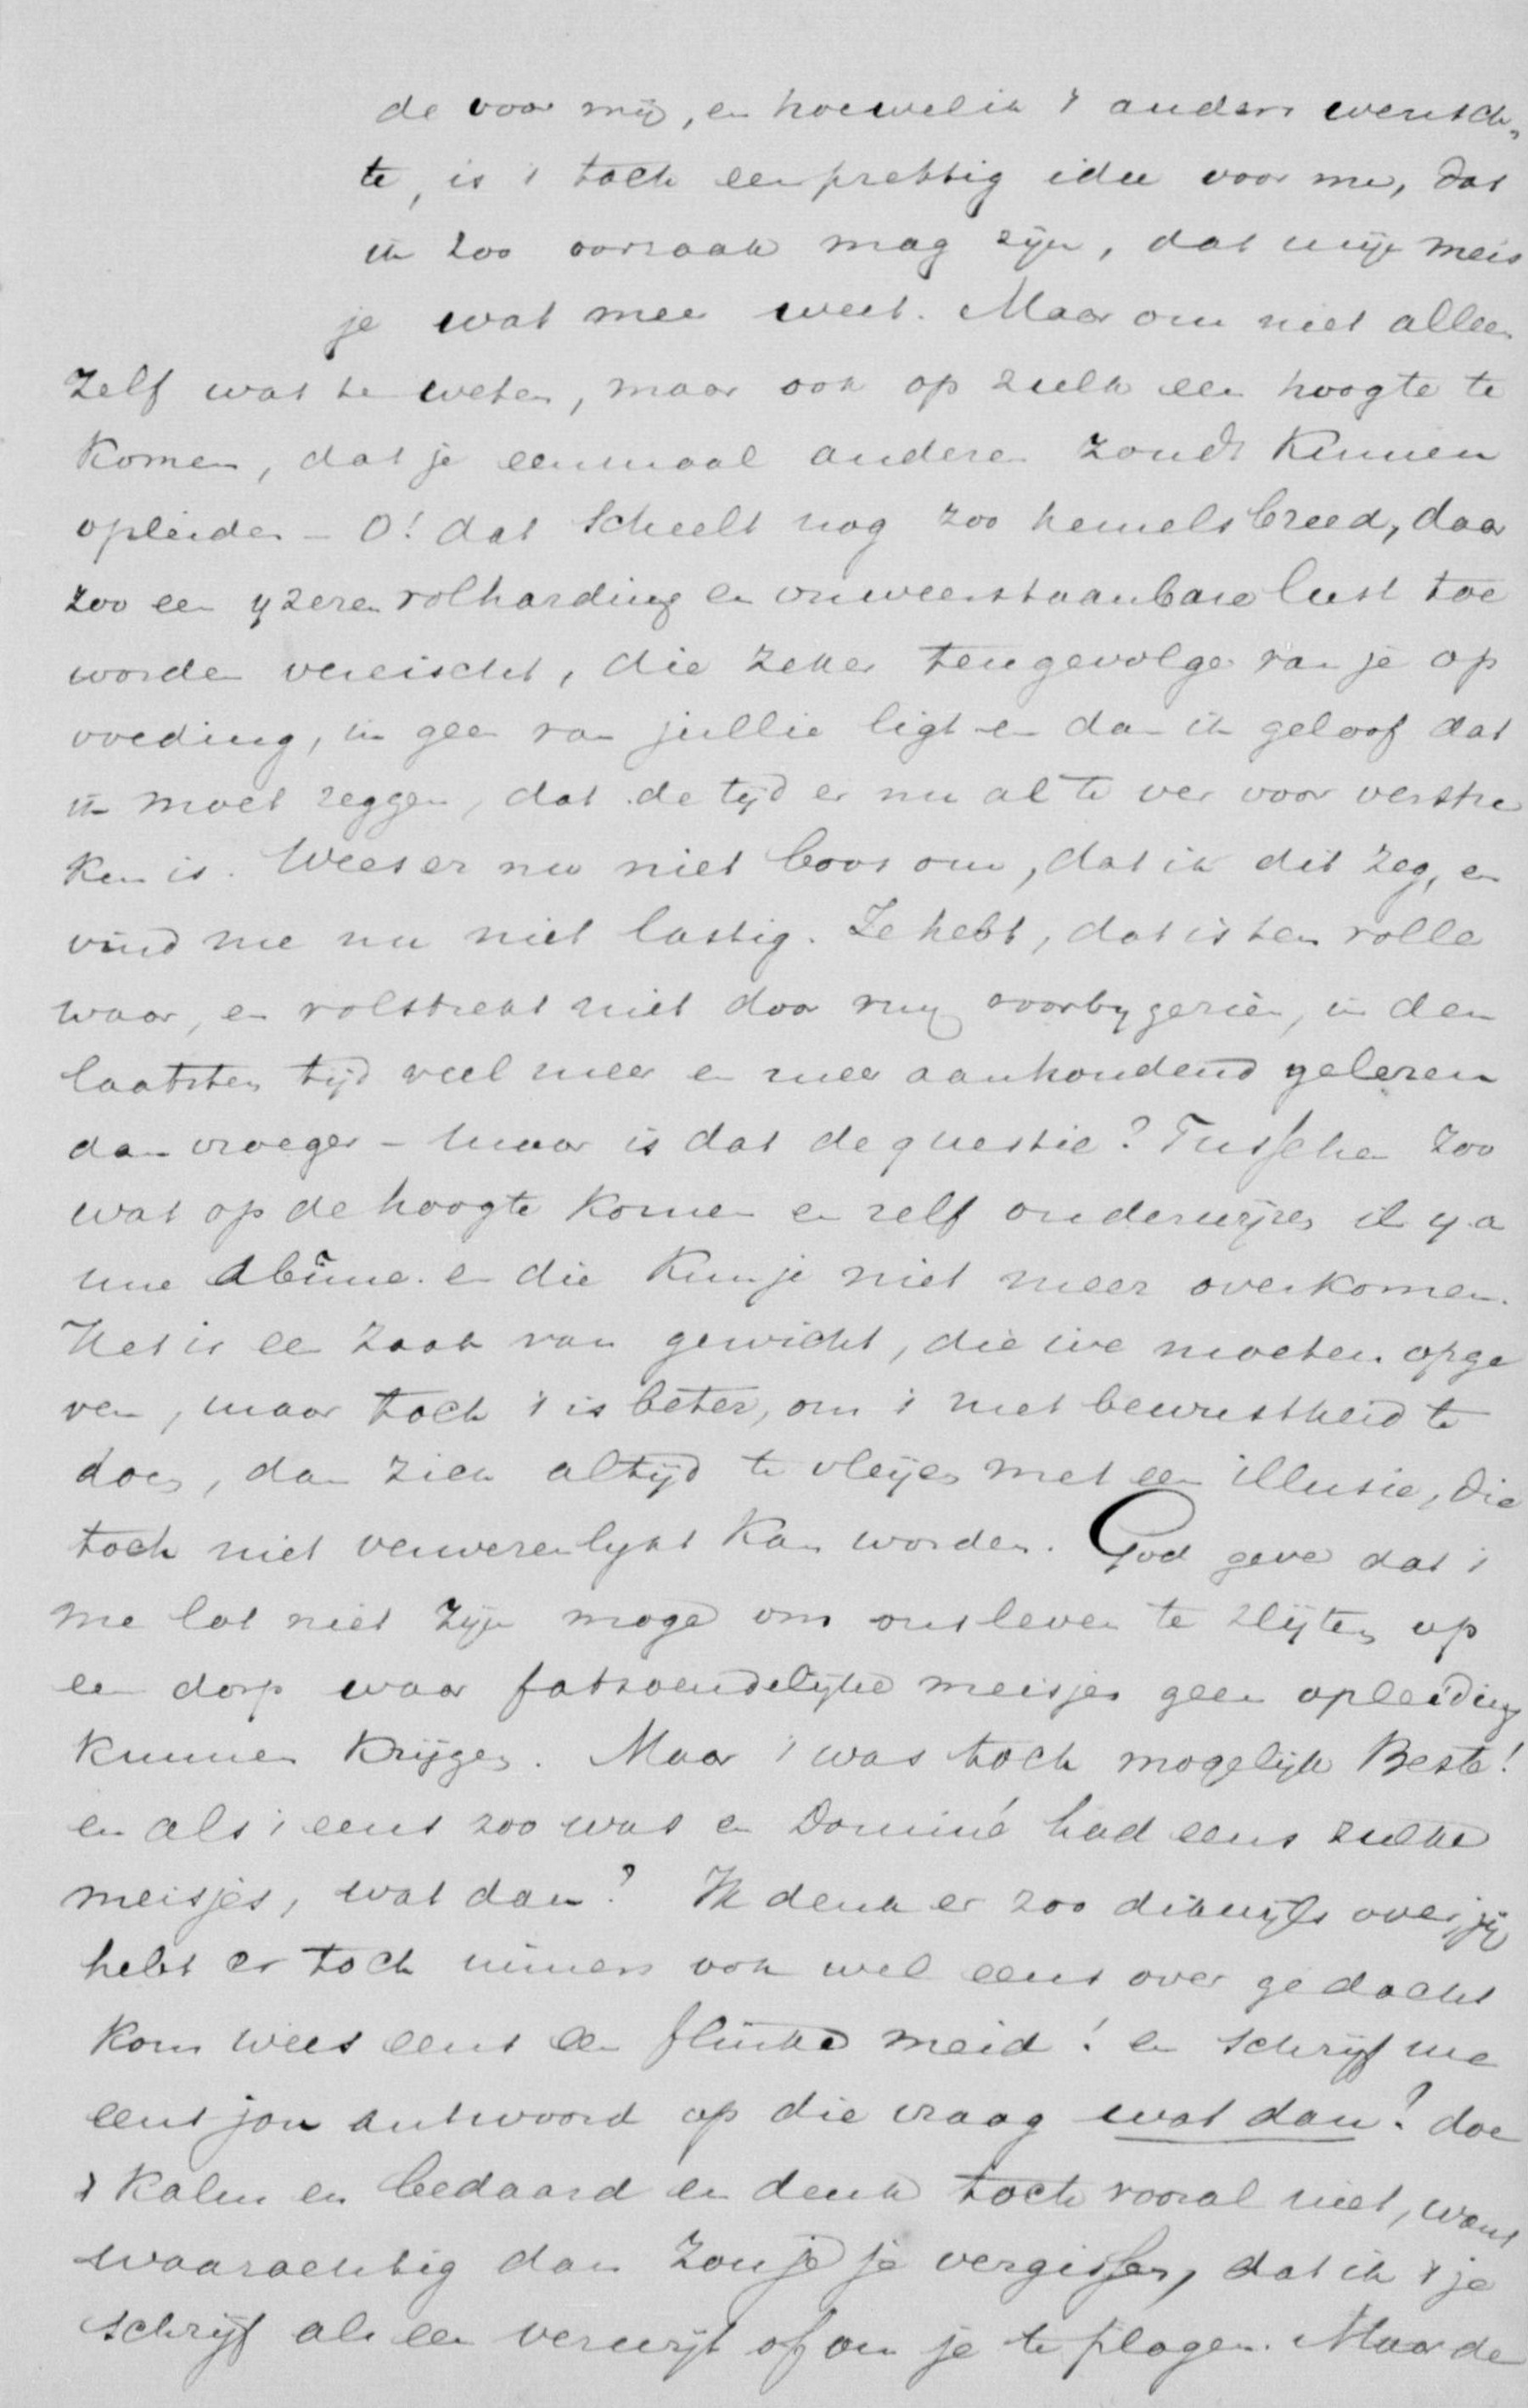 de voor mij, en hoewel ik 't anders wensch„
te, is 't toch een prettig idee voor me, dat
ik zoo oorzaak mag zijn, dat mijn meis
je wat meer weet. Maar om niet alleen
zelf wat te weten, maar ook op zulk een hoogte te
komen, dat je eenmaal anderen zoudt kunnen
opleiden – O! dat scheelt nog zoo hemelsbreed, daar
zoo een yzeren volharding en onweerstaanbare lust toe
worden vereischt, die zeker tengevolge van je op
voeding, in geen van jullie ligt en dan ik geloof dat
ik moet zeggen, dat de tijd er nu al te ver voor verstre
ken is. Wees er nu niet boos om, dat ik dit zeg, en
vind me nu niet lastig. Je hebt, dat is ten volle
waar, en volstrekt niet door my voorbygezien, in den
laatsten tijd veel meer en meer aanhoudend gelezen
dan vroeger – maar is dat de questie? Tusschen zoo
wat op de hoogte komen en zelf onderwijzen il y a
une abîme. en die kun je niet meer overkomen.
Het is een zaak van gewicht, die we moeten opge
ven, maar toch 't is beter, om 't met bewustheid te
doen, dan zich altijd te vleijen met een illusie, die
toch niet verwezenlykt kan worden. God geve dat 't
me lot niet zijn moge om ons leven te slijten op
een dorp waar fatsoendelijke meisjes geen opleiding
kunnen krijgen. Maar 't was toch mogelijk Beste!
en als 't eens zoo was en Dominé had eens zulke
meisjes, wat dan? Ik denk er zoo dikwijls over, jij
hebt er toch immers ook wel eens over gedacht
kom wees eens een flinke meid! en schrijf me
eens jou antwoord op die vraag wat dan? doe
't kalm en bedaard en denk toch vooral niet, want
waarachtig dan zou je je vergissen, dat ik 't je
schrijf als een verwijt of om je te plagen. Maar de